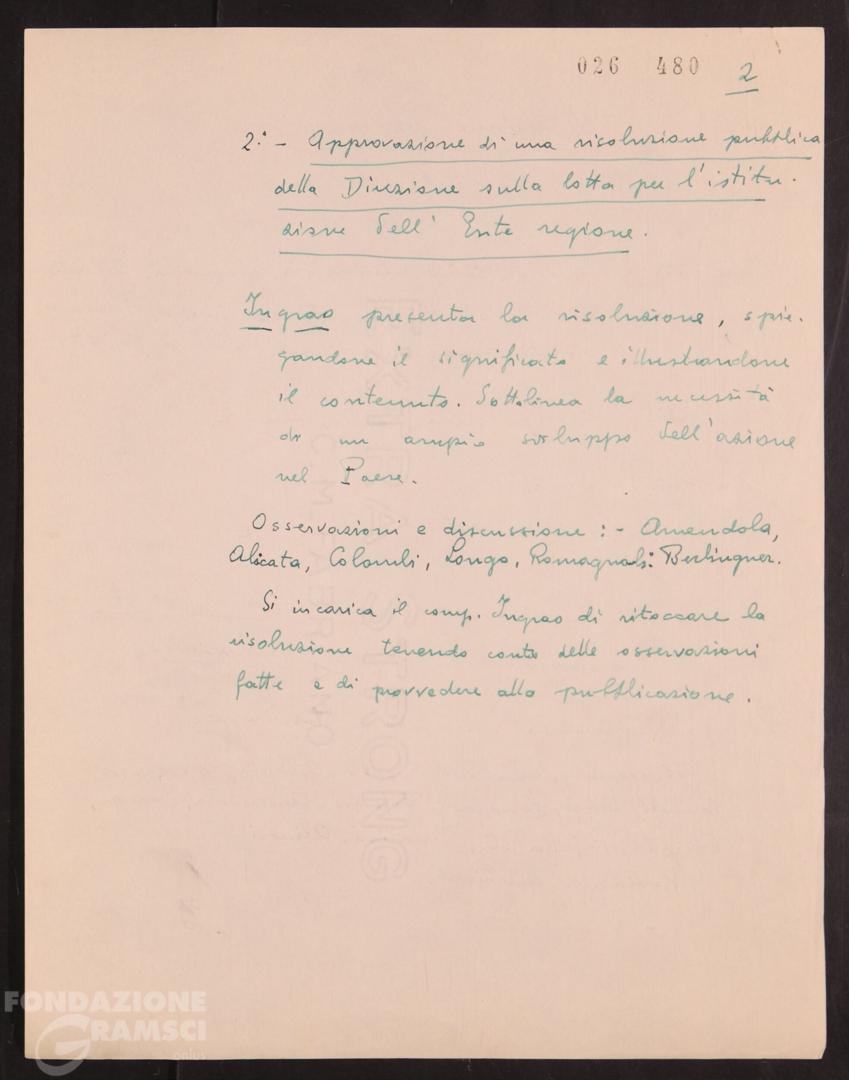 026 480 2
2.° - Approvazione di una risoluzione pubblica
della Direzione sulla lotta per l'istitu-
zione dell'Ente regione.
Ingrao presenta la risoluzione, spie-
gandone il significato e illustrandone
il contenuto. Sottolinea la necessità
di un ampio sviluppo dell'azione
nel Paese.
Osservazioni e discussione: - Amendola,
Alicata, Colombi, Longo, Romagnoli: Berlinguer.
Si incarica il comp. Ingrao di ritoccare la
risoluzione tenendo conto delle osservazioni
fatte e di provvedere alla pubblicazione.
STRONG
FONDAZIONE
GRAMSCI
onlus